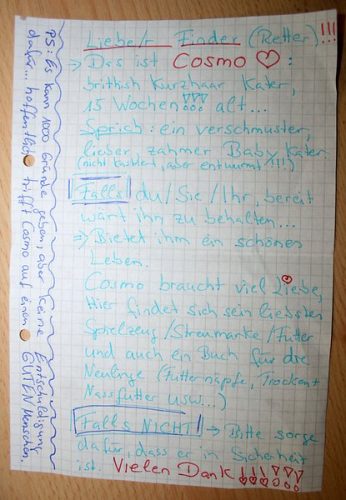 Liebe/r Finder (Retter)!!!
⇒ Das ist COSMO ♡:
brithish Kurzhaar Kater,
15 Wochen!!! alt...
Sprich: ein verschmuster,
lieber, zahmer Baby Kater.
(nicht kastriert, aber entwurmt!!!)
Falls du/Sie/Ihr, bereit
wärt ihn zu behalten...
⇒ Bietet ihm ein schönes
Leben.
Cosmo braucht viel Liebe,
Hier findet sich sein liebstes
Spielzeug/Streumarke/Futter
und auch ein Buch für die
Neulinge (Futternäpfe, Trocken+
Nassfutter usw...)
Falls NICHT! ⇒ Bitte sorge
dafür, dass er in Sicherheit
ist. Vielen Dank!!!!!!
PS: Es kann 1000 Gründe geben, aber keine Entschuldigung
dafür... hoffentlich trifft Cosmo auf einen GUTEN Menschen.